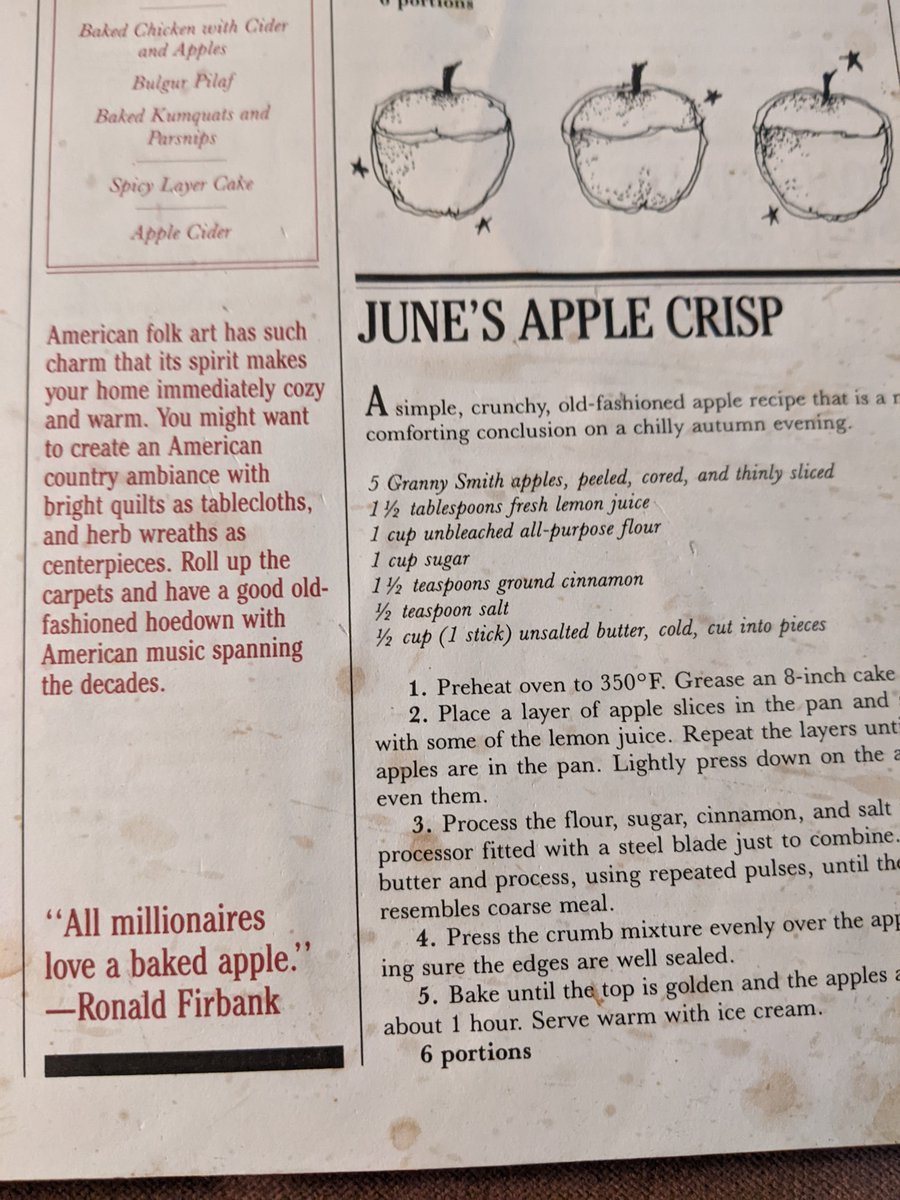 6 portions
Baked Chicken with Cider
and Apples
Bulgur Pilaf
Baked Kumquats and
Parsnips
Spicy Layer Cake
Apple Cider
American folk art has such
charm that its spirit makes
your home immediately cozy
and warm. You might want
to create an American
country ambiance with
bright quilts as tablecloths,
and herb wreaths as
centerpieces. Roll up the
carpets and have a good old-
fashioned hoedown with
American music spanning
the decades.
“All millionaires
love a baked apple.”
—Ronald Firbank
JUNE'S APPLE CRISP
A simple, crunchy, old-fashioned apple recipe that is a
comforting conclusion on a chilly autumn evening.
5 Granny Smith apples, peeled, cored, and thinly sliced
1½ tablespoons fresh lemon juice
1 cup unbleached all-purpose flour
1 cup sugar
1½ teaspoons ground cinnamon
½ teaspoon salt
½ cup (1 stick) unsalted butter, cold, cut into pieces
1. Preheat oven to 350°F. Grease an 8-inch cake
2. Place a layer of apple slices in the pan and
with some of the lemon juice. Repeat the layers
apples are in the pan. Lightly press down on the
even them.
3. Process the flour, sugar, cinnamon, and salt
processor fitted with a steel blade just to combine.
butter and process, using repeated pulses, until
resembles coarse meal.
4. Press the crumb mixture evenly over the
ing sure the edges are well sealed.
5. Bake until the top is golden and the apples
about 1 hour. Serve warm with ice cream.
6 portions